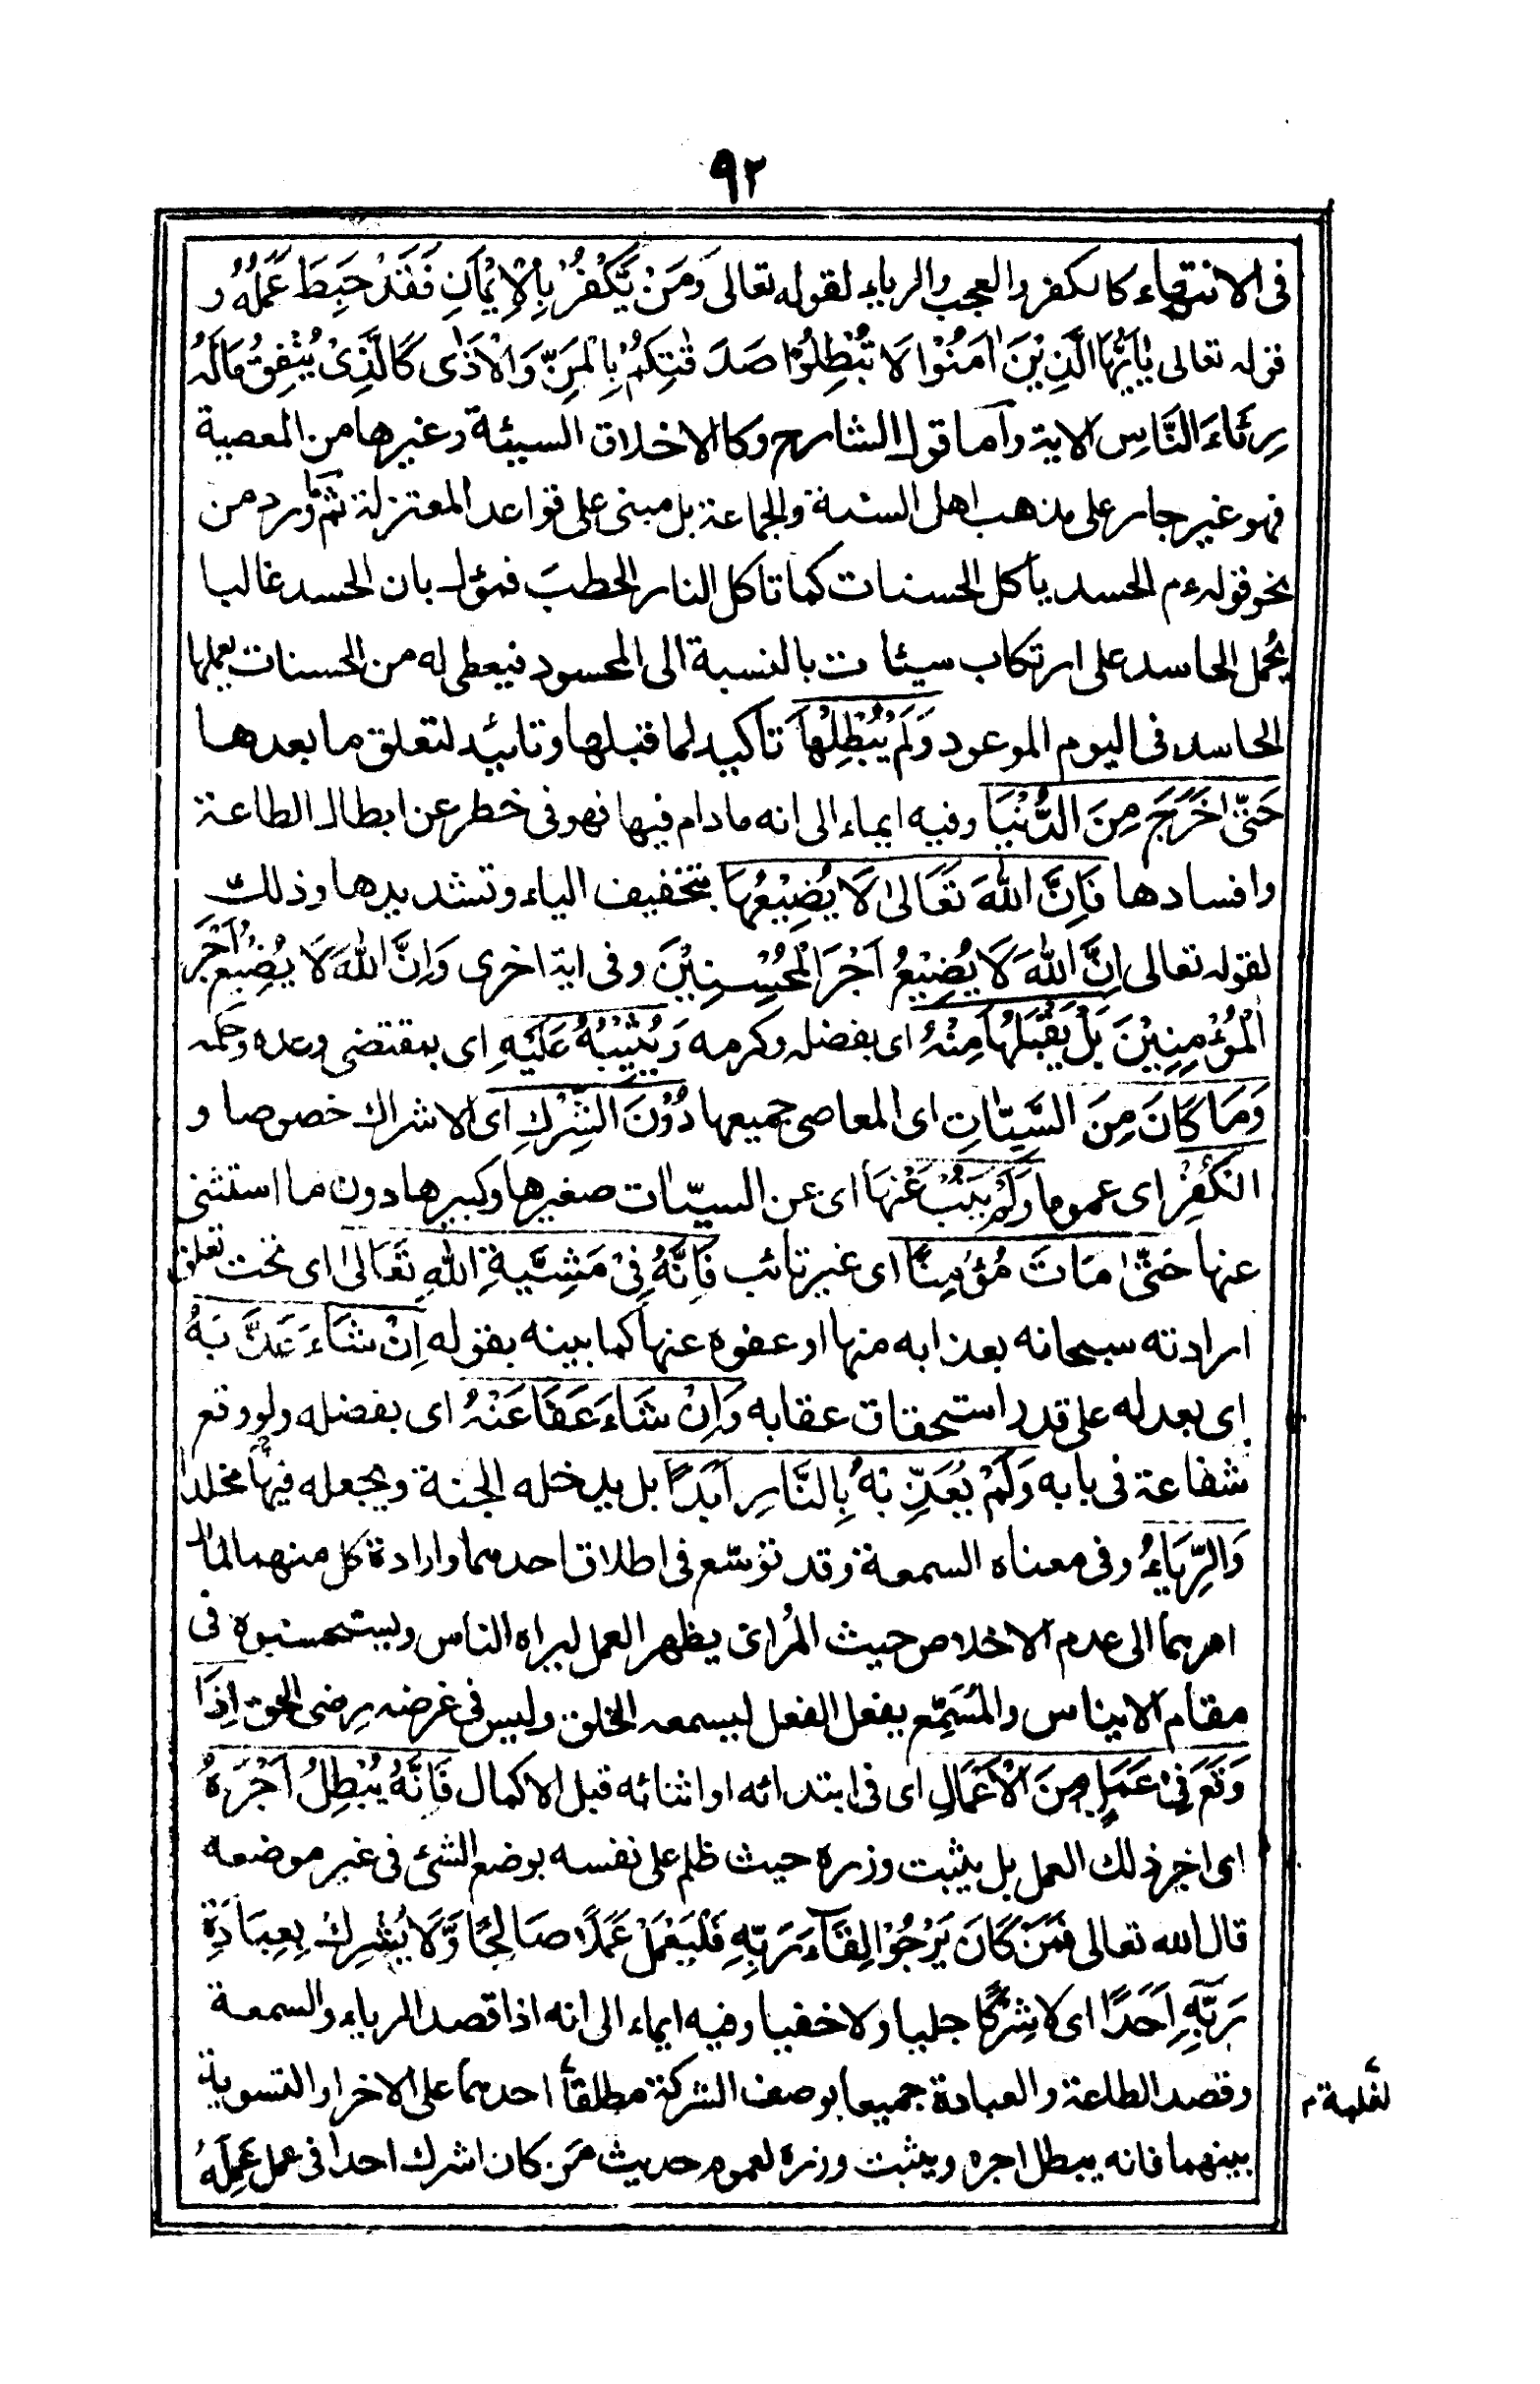 ٩٢
فی الانتهاء کالکفر والعجب والرياء لقوله تعالى وَمَنْ يَّكْفُرْ بِالْاِيْمَانِ فَقَدْ حَبِطَ عَمَلُهٗ و
قوله تعالى يٰاَيُّهَا الَّذِيْنَ اٰمَنُوْا لَا تُبْطِلُوْا صَدَقٰتِكُمْ بِالْمَنِّ وَالْاَذٰى كَالَّذِىْ يُنْفِقُ مَالَهٗ
رِئَاءَ النَّاسِ الاية واما قول الشارح وكالاخلاق السيئة وغيرها من المعصية
فهو غير جار على مذهب اهل السنة والجماعة بل مبنى على قواعد المعتزلة ثم ما ورد من
نحو قوله ءم الحسد يأكل الحسنات كما تاكل النار الحطب فمؤل بان الحسد غالبا
يحمل الحاسد على ارتكاب سيئات بالنسبة الى المحسود فيعطى له من الحسنات يعملها
الحاسد فى اليوم الموعود وَلَمْ يُبْطِلْهَا تأكيد لما قبلها وتائيد لتعلق ما بعدها
حَتّٰى خَرَجَ مِنَ الدُّنْيَا وفيه ايماء الى انه مادام فيها فهو فى خطر عن ابطال الطاعة
وافسادها فَاِنَّ اللهَ تَعَالىٰ لَا يُضِيْعُهَا بتخفيف الياء وتشديدها وذلك
لقوله تعالى اِنَّ اللهَ لَا يُضِيْعُ اَجْرَ الْمُحْسِنِيْنَ وفى اية اخرى وَاِنَّ اللهَ لَا يُضِيْعُ اَجْرَ
الْمُؤْمِنِيْنَ بَلْ يَقْبَلُهَا مِنْهُ اى بفضله وكرمه وَيُثِيْبُهُ عَلَيْهِ اى بمقتضى وعده وحكمه
وَمَا كَانَ مِنَ السَّيِّاٰتِ اى المعاصى جميعها دُوْنَ الشِّرْكِ اى الاشراك خصوصا و
الْكُفْرِ اى عموما وَلَمْ يَتُبْ عَنْهَا اى عن السيّاٰت صغيرها وكبيرها دون ما استثنى
عنها حَتّٰى مَاتَ مُؤْمِنًا اى غير تائب فَاِنَّهٗ فِىْ مَشِيَّةِ اللهِ تَعَالىٰ اى تحت تعلق
ارادته سبحانه بعذابه منها او عفوه عنها كما بينه بقوله اِنْ شَاءَ عَذَّبَهُ
اى بعدله على قدر استحقاق عقابه وَاِنْ شَاءَ عَفَا عَنْهُ اى بفضله ولو وقع
شفاعة فى بابه وَلَمْ يُعَذِّبْهُ بِالنَّارِ اَبَدًا بل يدخله الجنة ويجعله فيها مخلدا
وَالرِّيَاءُ وفى معناه السمعة وقد توسّع فى اطلاق احدهما وارادة كل منهما لمال
امرهما الى عدم الاخلاص حيث المُرائى يظهر العمل ليراه الناس ويستحسنوه فى
مقام الايناس والمُسَمِّع يفعل الفعل ليسمعه الخلق وليس فى غرضه رضى الحق اِذَا
وَقَعَ فِىْ عَمَلٍ مِنَ الْاَعْمَالِ اى فى ابتدائه او اثنائه قبل الاكمال فَاِنَّهٗ يُبْطِلُ اَجْرَهٗ
اى اجر ذلك العمل بل يثبت وزره حيث ظلم على نفسه بوضع الشئ فى غير موضعه
قال الله تعالى فَمَنْ كَانَ يَرْجُوْا لِقَآءَ رَبِّهٖ فَلْيَعْمَلْ عَمَلًا صَالِحًا وَّلَا يُشْرِكْ بِعِبَادَةِ
رَبِّهٖ اَحَدًا اى لا شِرْكًا جليا ولا خفيا وفيه ايماء الى انه اذا قصد الرياء والسمعة
وقصد الطاعة والعبادة جميعا بوصف الشركة مطلقا احدهما على الاخر او التسوية
لغلبة م
بينهما فانه يبطل اجره ويثبت وزره لعموم حديث مَن كان اشرك احدا فى عمل عَمِلَهٗ